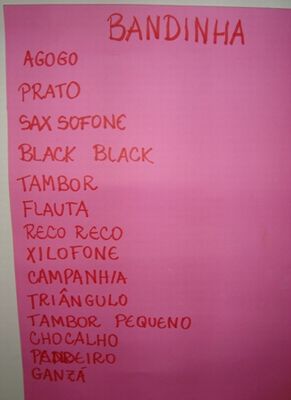 BANDINHA
AGOGO
PRATO
SAX SOFONE
BLACK BLACK
TAMBOR
FLAUTA
RECO RECO
XILOFONE
CAMPANHIA
TRIÂNGULO
TAMBOR PEQUENO
CHOCALHO
PANDEIRO
GANZÁ